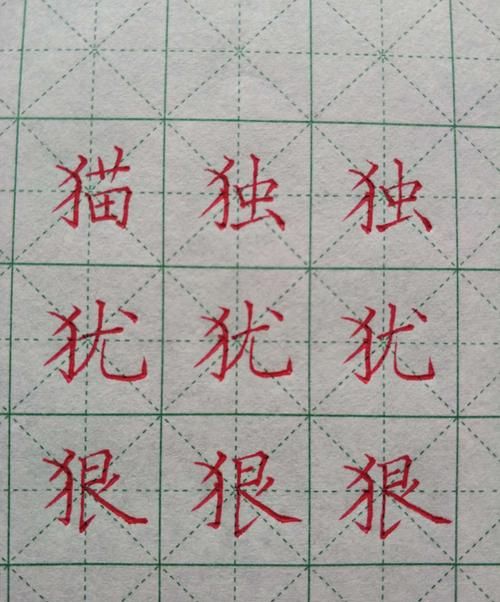 猫独独
犹犹犹
狠狠狠